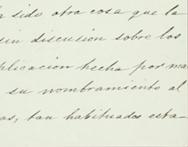 sido otra cosa que la
sin discusion sobre los
plicacion hecha por ma
su nombramiento al
as, tan habituados esta-